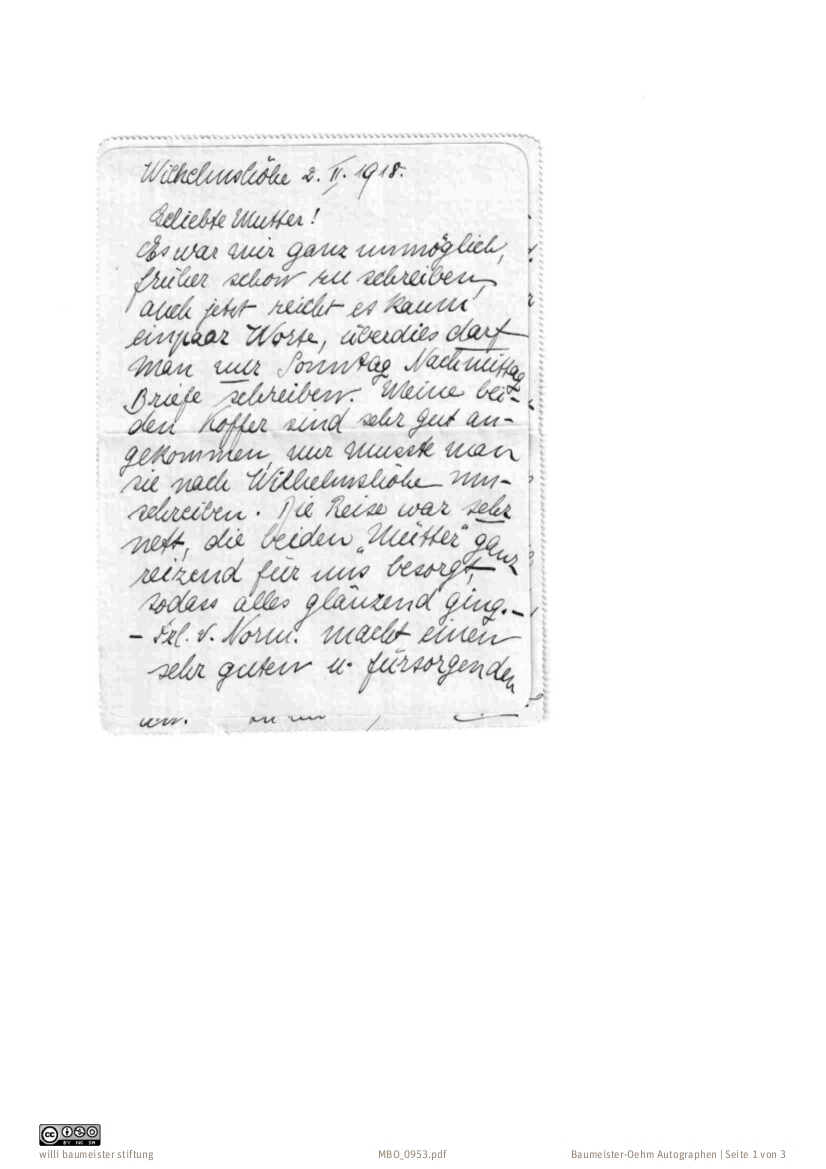 Wilhelmshöhe 2. II. 1918.
Geliebte Mutter!
Es war mir ganz unmöglich,
früher schon zu schreiben,
auch jetzt reicht es kaum
einpaar Worte, überdies darf
man nur Sonntag Nachmittag
Briefe schreiben. Meine bei-
den Koffer sind sehr gut an-
gekommen, nur musste man
sie nach Wilhelmshöhe um-
schreiben. Die Reise war sehr
nett, die beiden „Mütter" ganz
reizend für uns besorgt,
sodass alles glänzend ging.–
– Frl. v. Norm. macht einen
sehr guten u. fürsorgenden
CC BY NC SA
willi baumeister stiftung
MBO_0953.pdf
Baumeister-Oehm Autographen | Seite 1 von 3